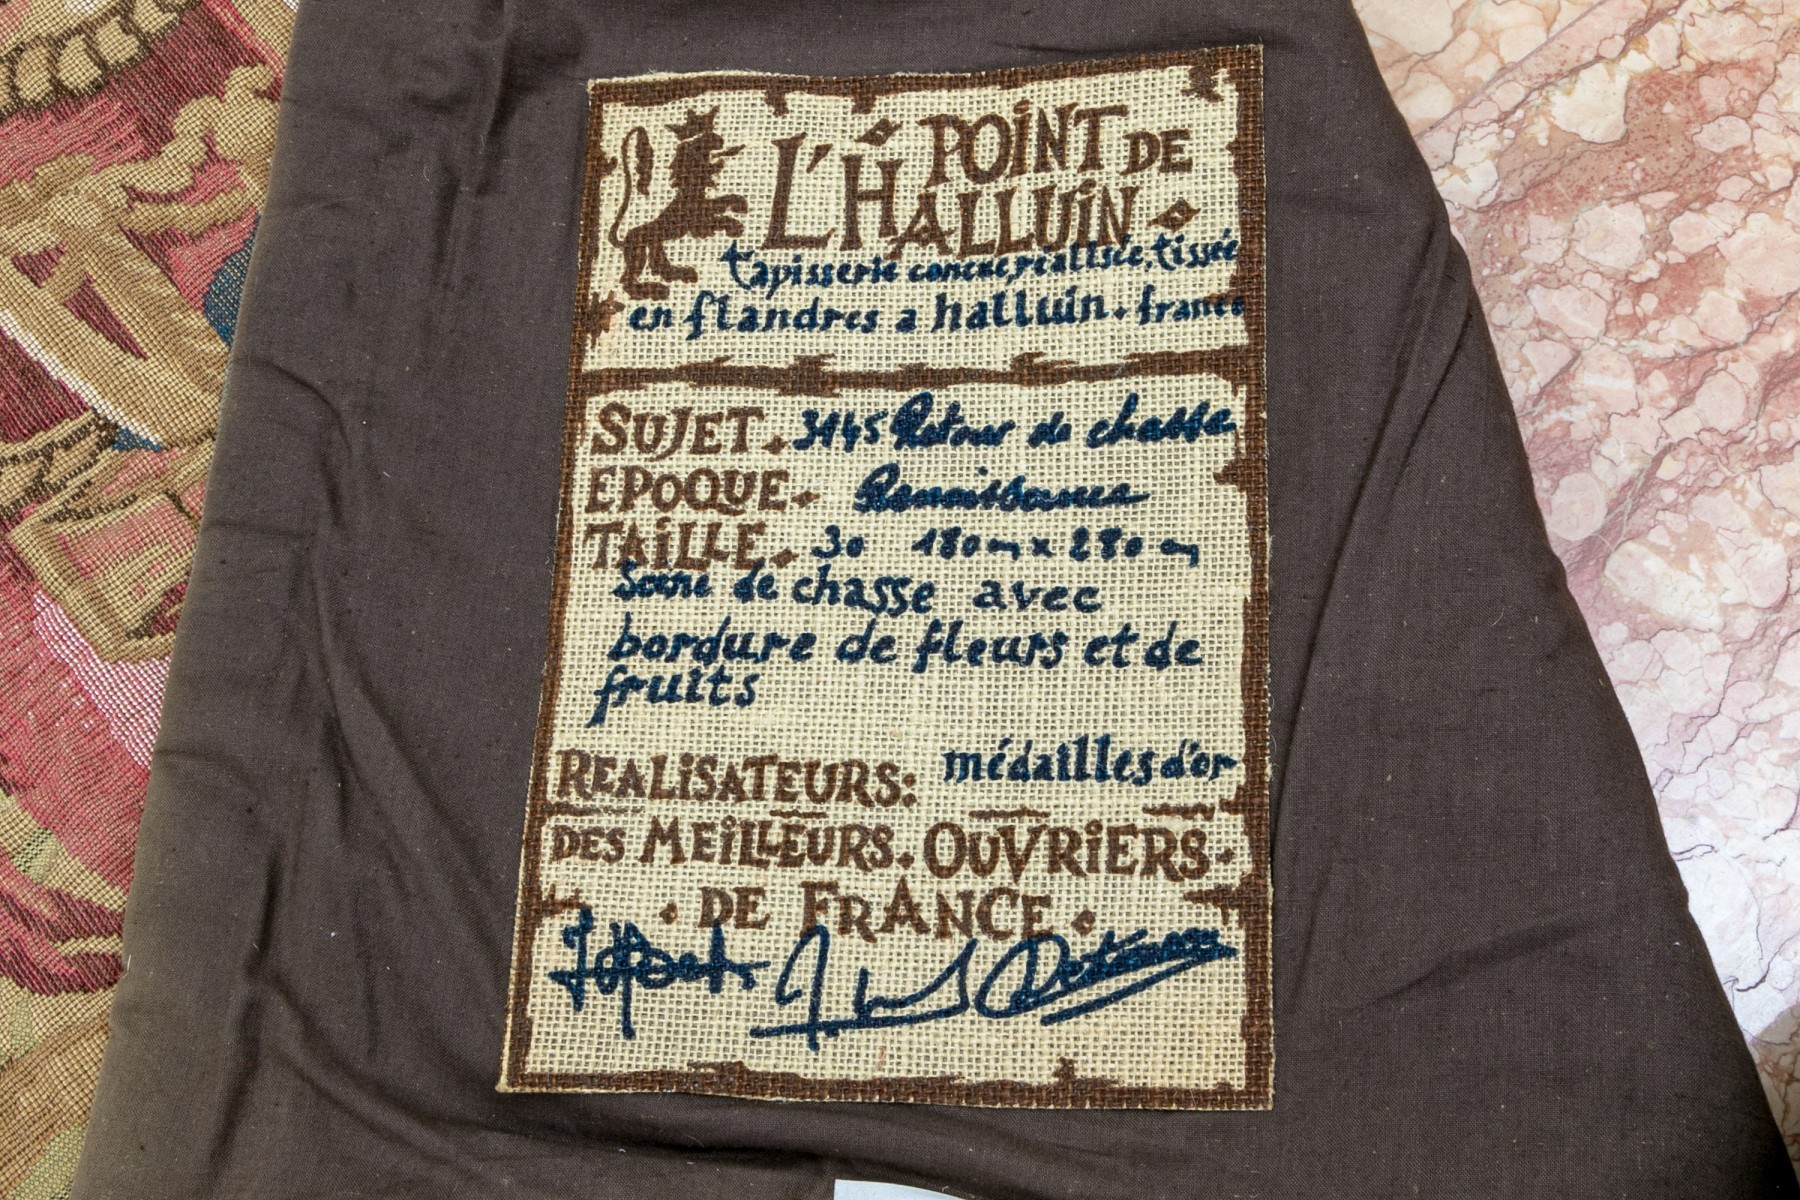 POINT DE
L'HALLUIN
tapisserie concue, réalisée, tissée
en flandres a halluin. france
SUJET. 3145 Retour de chasse
EPOQUE. Renaissance
TAILLE. 30 180 cm x 280 cm
Scene de chasse avec
bordure de fleurs et de
fruits
REALISATEURS: médailles d'or
DES MEILLEURS. OUVRIERS.
. DE FRANCE.